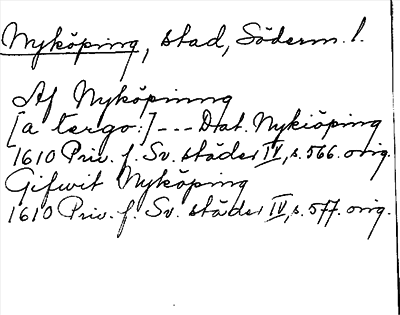 Nyköping, stad, Söderm. l.
Af Nyköpinng
[a tergo:] --- Dat. Nykiöping
1610 Priv. f. Sv. städer IV, s. 566. orig.
Gifwit Nyköping
1610 Priv. f. Sv. städer IV, s. 577. orig.